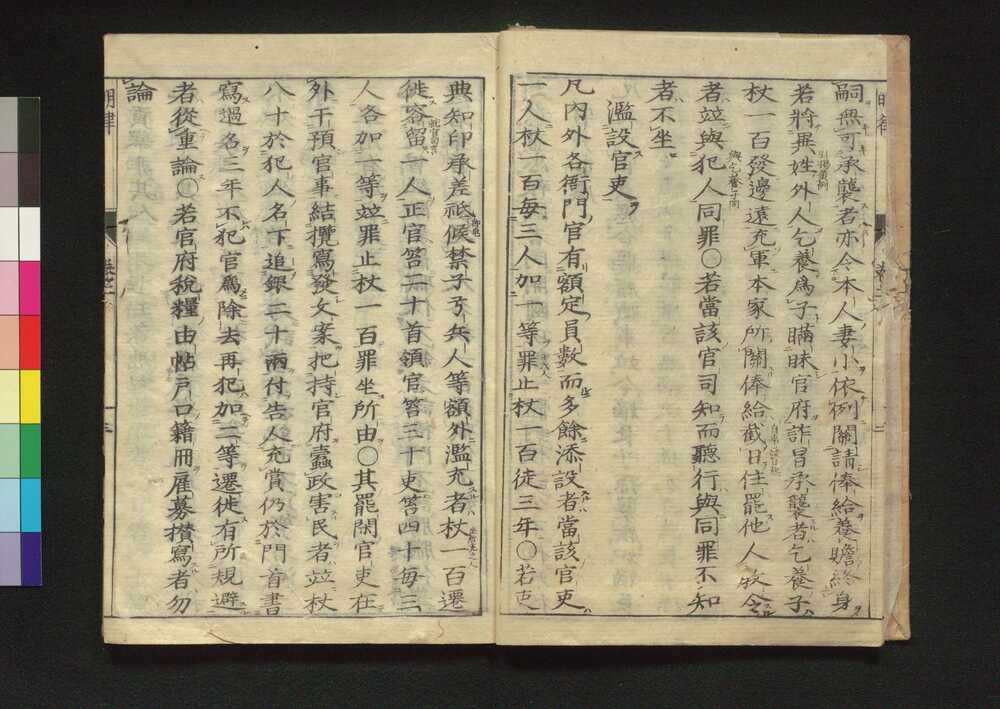 嗣無可承襲者亦令本人妻小依例關請俸給養贍終身
若將異姓外人乞養爲子瞞昧官府詐冒承襲者乞養子
杖一百發邊遠充軍本家所關俸給截日住罷他人教令
者竝與犯人同罪〇若當該官司知而聽行與同罪不知
者不坐
濫設官吏
凡內外各衙門官有額定員數而多餘添設者當該官吏
一人杖一百每三人加一等罪止杖一百徒三年〇若吏
典知印承差祗候禁子弓兵人等額外濫充者杖一百遷
徙容留一人正官笞二十首領官笞三十吏笞四十每三
人各加一等竝罪止杖一百罪坐所由〇其罷閑官吏在
外干預官事結攬寫發文案把持官府蠹政害民者竝杖
八十於犯人名下追銀二十兩付告人充賞仍於門首書
寫過名二年不犯官爲除去再犯加二等遷徙有所規避
者從重論〇若官府稅糧由帖戶口籍冊雇募攢寫者勿
論
明律